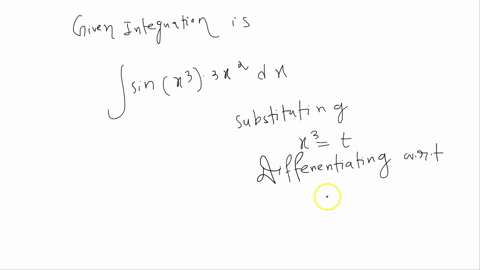 Given Integration is
∫ sin (x³) · 3x² dx
substituting
x³ = t
Differentiating w.r.t